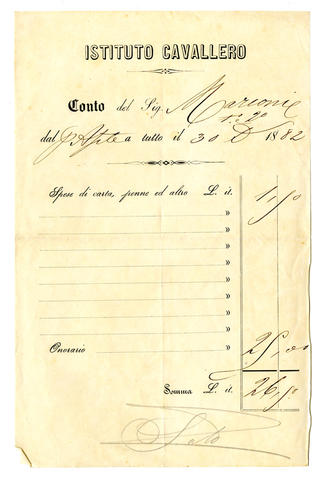 ISTITUTO CAVALLERO
Conto del Sig. Marconi
n.° 20
dal 1° Aple a tutto il 30 D 1882
Spese di carta, penne ed altro L. it. 1,50
»
»
»
»
»
»
»
Onorario » 25,00
Somma L. it. 26,50